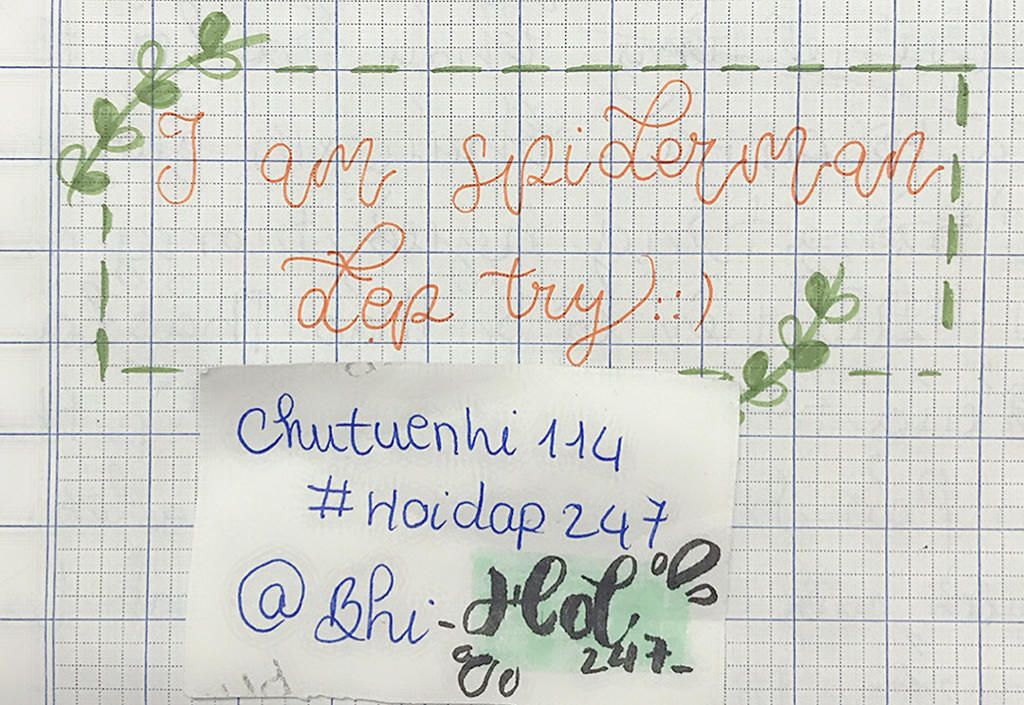 I am spiderman
đẹp try :::)
Chutuenhi 114
#Hoidap 247
@Bhi-
247-